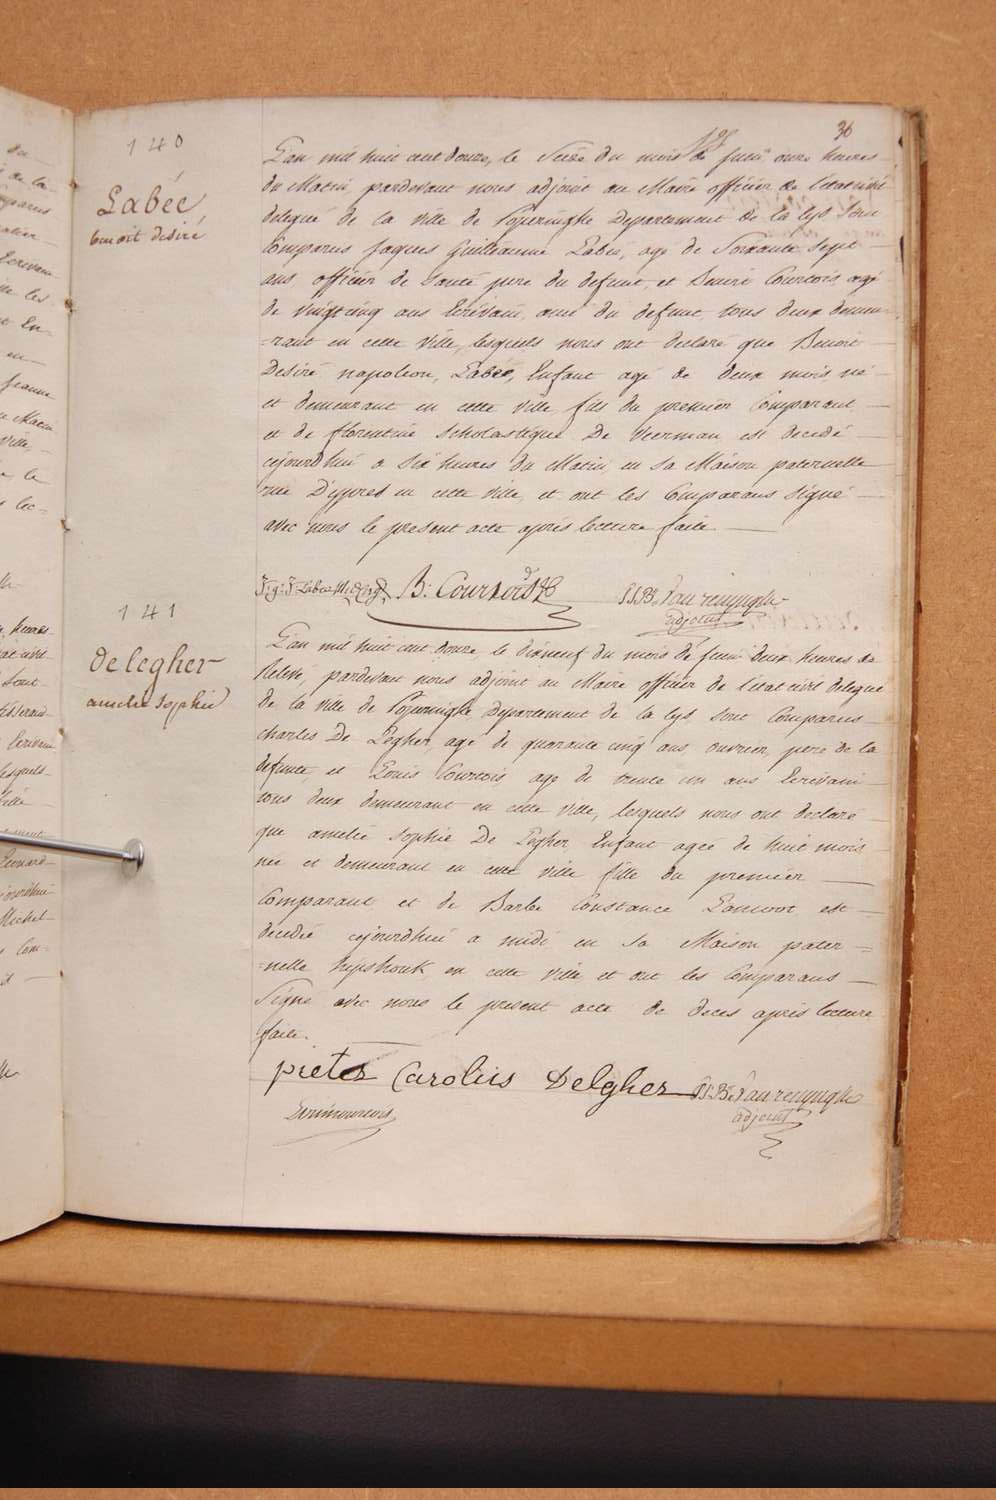 36
140
Labée
benoit désiré
L'an mil huit cent douze, le Seize du mois de juin onze heures
du Matin, pardevant nous adjoint au Maire officier de l'état civil
delegué de la ville de Poperinghe Departement de la lys sont
Comparus Jaques Guilleaume Labée, agé de Soixante Sept
ans, officier de santé, pere du defunt, et Courtois, agé
de vingt cinq ans Ecrivain, ami du defunt tous deux demeu-
=rant en cette ville, lesquels nous ont declaré que Benoit
Desiré napoleon, Labée, Enfant agé de deux mois né
et demeurant en cette ville fils du premier Comparant
et de florentine Scholastique De Veerman, est decedé
cejourdhui a six heures du Matin, en sa Maison paternelle
rue D'ypres en cette ville, et ont les Comparans Signé
avec nous le present acte après lecture faite
B: Courtois
adjoint
141
delegher
amelie sophie
L'an mil huit cent douze le dixneuf du mois de juin deux heures de
Relevé, pardevant nous adjoint au Maire officier de l'état civil delegue
de la ville de Poperinghe Departement de la lys sont Comparus
charles De Legher, agé de quarante cinq ans, ouvrier, pere de la
defunte, et Louis Courtois, age de trente un ans Ecrivain
tous deux demeurant en cette ville, lesquels nous ont declaré
que amelie Sophie De Legher, Enfant agée de huit mois
née et demeurant en cette ville fille du premier
Comparant et de Barbe Constance est
decedée cejourdhui a midi en sa Maison pater=
=nelle en cette ville et ont les Comparans
Signe avec nous le present acte de deces après lecture
faite.
pieter Carolus Delgher
adjoint